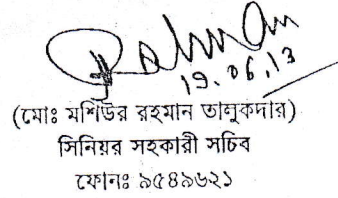 Rahman
19.06.13
(মোঃ মশিউর রহমান তালুকদার)
সিনিয়র সহকারী সচিব
ফোনঃ ৯৫৪৯৬২১